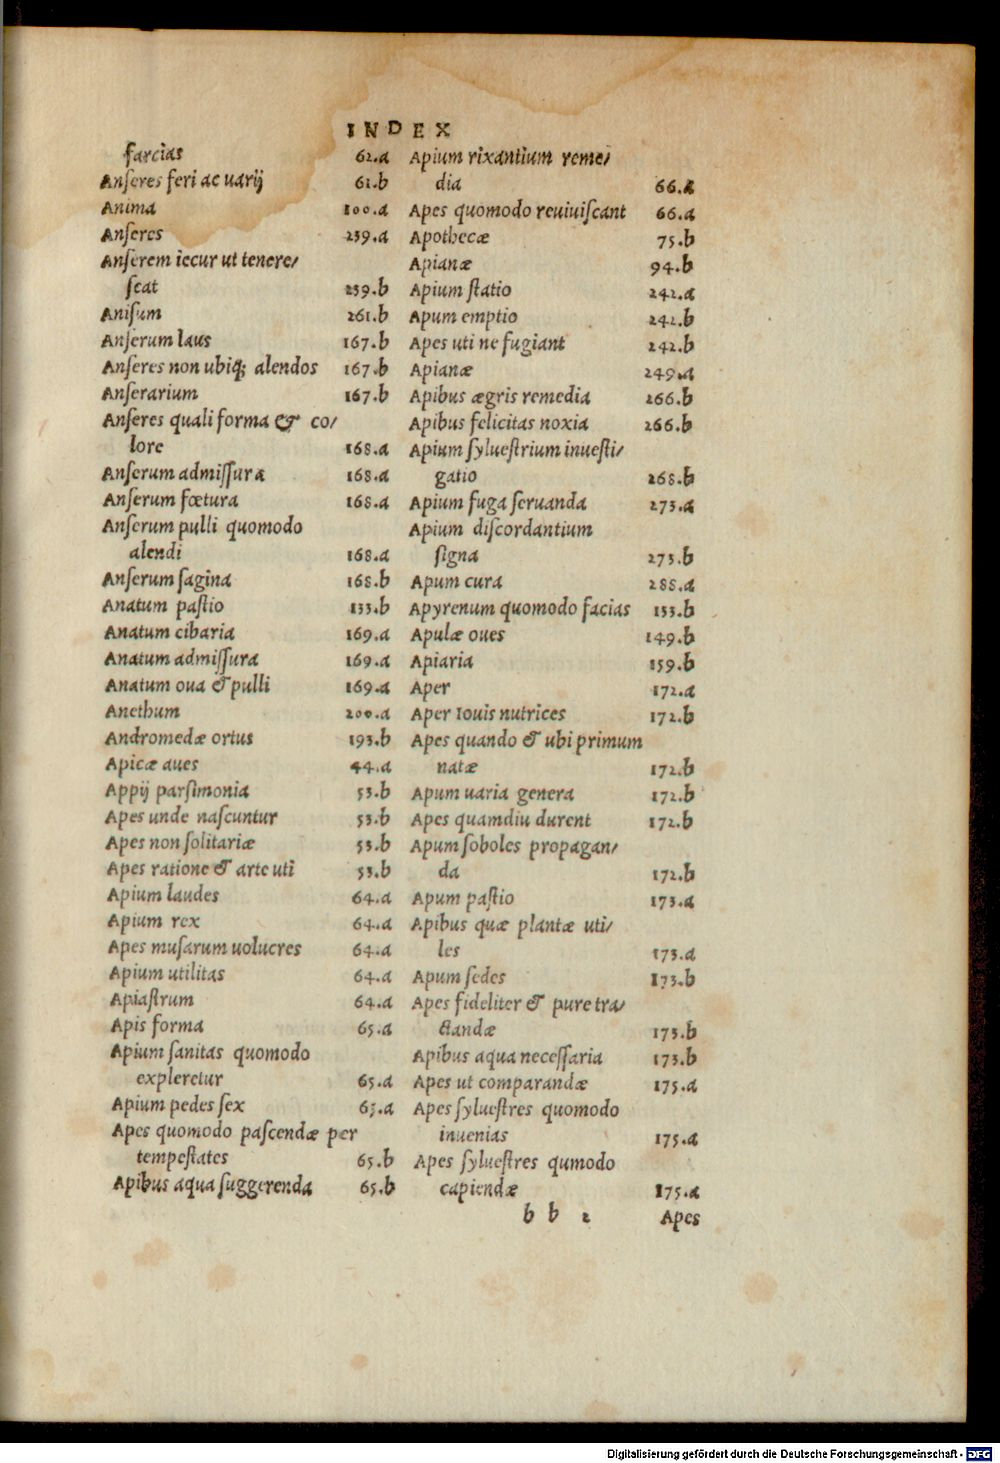 INDEX
farcias 62.a
Anſeres feri ac uarij 61.b
Anima 100.a
Anſeres 239.a
Anſerem iecur ut tenere/
ſcat 239.b
Aniſum 261.b
Anſerum laus 167.b
Anſeres non ubiq; alendos 167.b
Anſerarium 167.b
Anſeres quali forma & co/
lore 168.a
Anſerum admiſſura 168.a
Anſerum fœtura 168.a
Anſerum pulli quomodo
alendi 168.a
Anſerum ſagina 168.b
Anatum paſtio 133.b
Anatum cibaria 169.a
Anatum admiſſura 169.a
Anatum oua & pulli 169.a
Anethum 200.a
Andromedæ ortus 193.b
Apicæ aues 44.a
Appij parſimonia 53.b
Apes unde naſcuntur 53.b
Apes non ſolitariæ 53.b
Apes ratione & arte uti 53.b
Apium laudes 64.a
Apium rex 64.a
Apes muſarum uolucres 64.a
Apium utilitas 64.a
Apiaſtrum 64.a
Apis forma 65.a
Apium ſanitas quomodo
expleretur 65.a
Apium pedes ſex 65.a
Apes quomodo paſcendæ per
tempeſtates 65.b
Apibus aqua ſuggerenda 65.b
Apium rixantium reme/
dia 66.a
Apes quomodo reuiuiſcant 66.a
Apothecæ 75.b
Apianæ 94.b
Apium ſtatio 242.a
Apum emptio 242.b
Apes uti ne fugiant 242.b
Apianæ 249.a
Apibus ægris remedia 266.b
Apibus felicitas noxia 266.b
Apium ſylueſtrium inueſti/
gatio 268.b
Apium fuga ſeruanda 273.a
Apium diſcordantium
ſigna 273.b
Apum cura 288.a
Apyrenum quomodo facias 133.b
Apulæ oues 149.b
Apiaria 159.b
Aper 172.a
Aper Iouis nutrices 172.b
Apes quando & ubi primum
natæ 172.b
Apum uaria genera 172.b
Apes quamdiu durent 172.b
Apum ſoboles propagan/
da 172.b
Apum paſtio 173.a
Apibus quæ plantæ uti/
les 173.a
Apum ſedes 173.b
Apes fideliter & pure tra/
ctandæ 173.b
Apibus aqua neceſſaria 173.b
Apes ut comparandæ 175.a
Apes ſylueſtres quomodo
inuenias 175.a
Apes ſylueſtres qumodo
capiendæ 175.a
b b 2 Apes
Digitalisierung gefördert durch die Deutsche Forschungsgemeinschaft - DFG